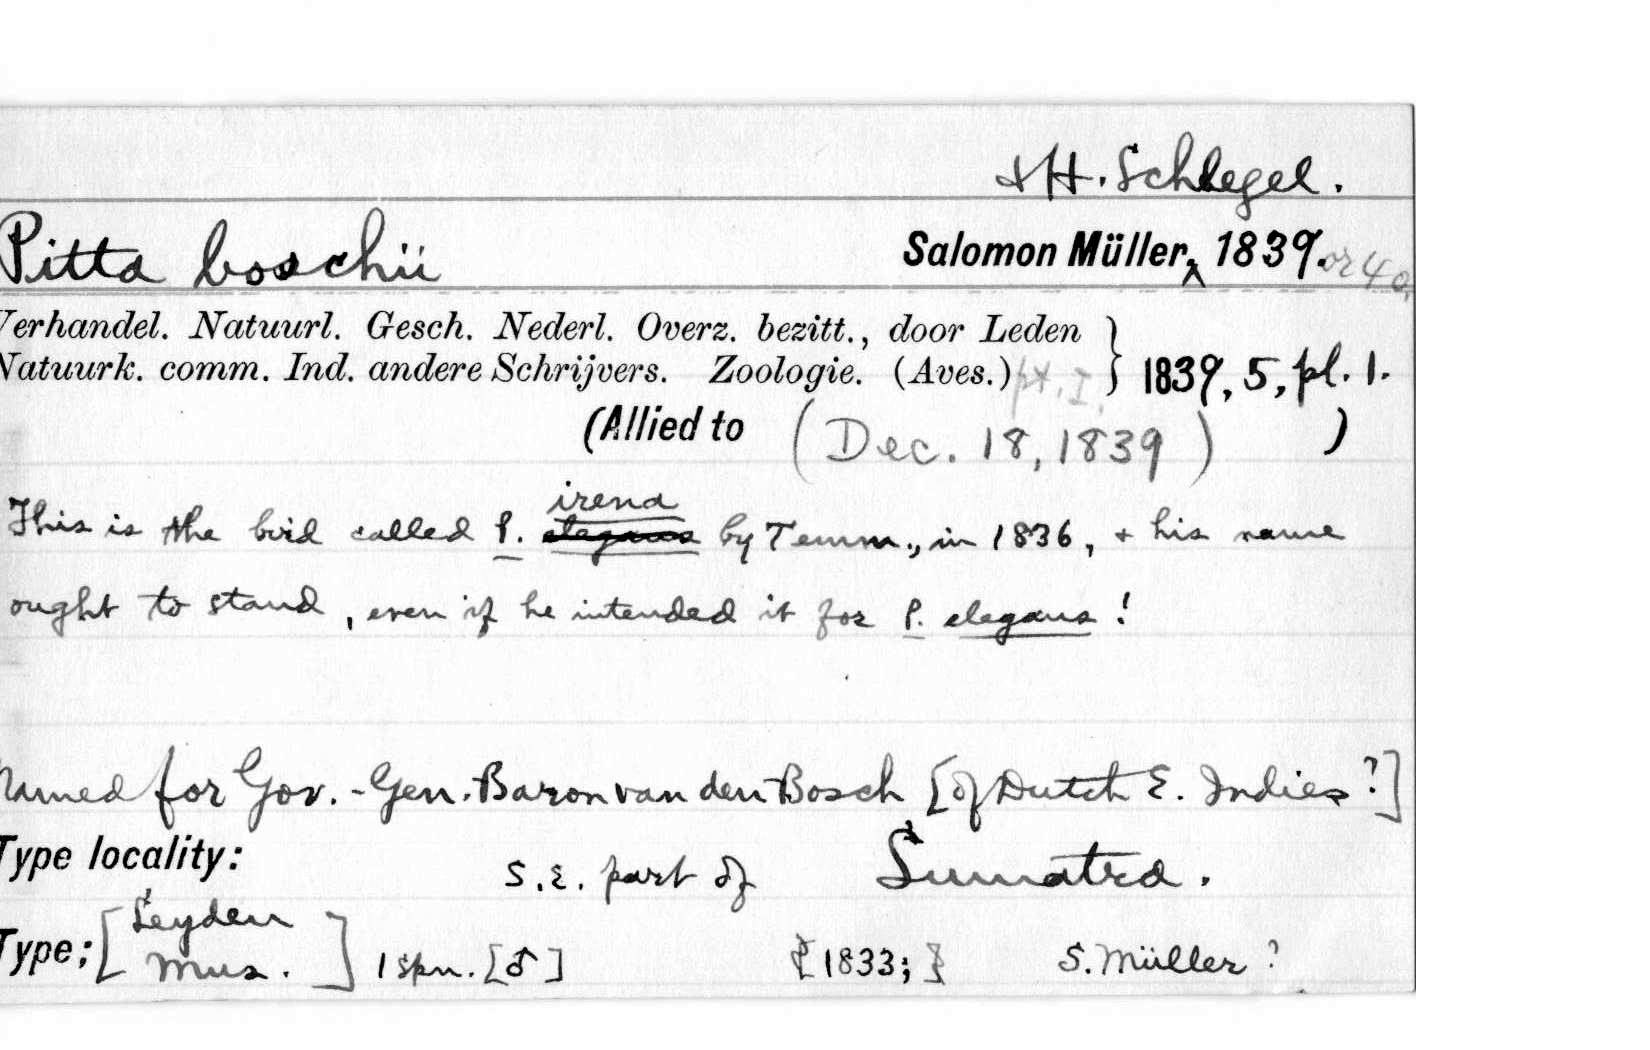 & H. Schlegel.
Pitta boschii Salomon Müller, 1839. or 40.
Verhandel. Natuurl. Gesch. Nederl. Overz. bezitt., door Leden
Natuurk. comm. Ind. andere Schrijvers. Zoologie. (Aves.) pt. I. } 1839, 5, pl. 1.
(Allied to (Dec. 18, 1839) )
irena
This is the bird called P. elegans by Temm., in 1836, & his name
ought to stand, even if he intended it for P. elegans!
Named for Gov.-Gen. Baron van den Bosch [of Dutch E. Indies?]
Type locality: S.E. part of Sumatra.
Type; [Leyden Mus.] 1 spn. [♂] [1833;] S. Müller?